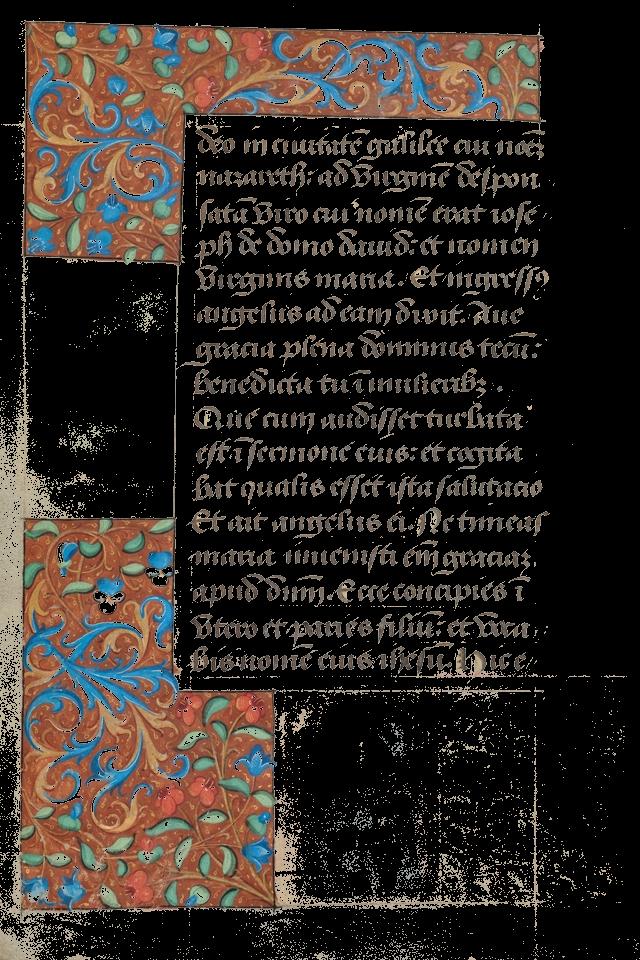 deo in ciuitatē galilee cui noēꝫ
nazareth: ad virginē despon
satā viro cui nomē erat iose
ph de domo dauid: et nomen
virginis maria. Et ingressꝰ
angelus ad eam dixit. Aue
gracia plena dominus tecū:
benedicta tu ī mulieribꝫ.
Que cum audisset turbata
est ī sermone eius: et cogita
bat qualis esset ista salutacio
Et ait angelus ei. Ne timeas
maria inuenisti em̄ graciaꝫ
apud dūm. Ecce concipies ī
vtero et paries filiū: et voca
bis nomē eius ihesū. Hic e